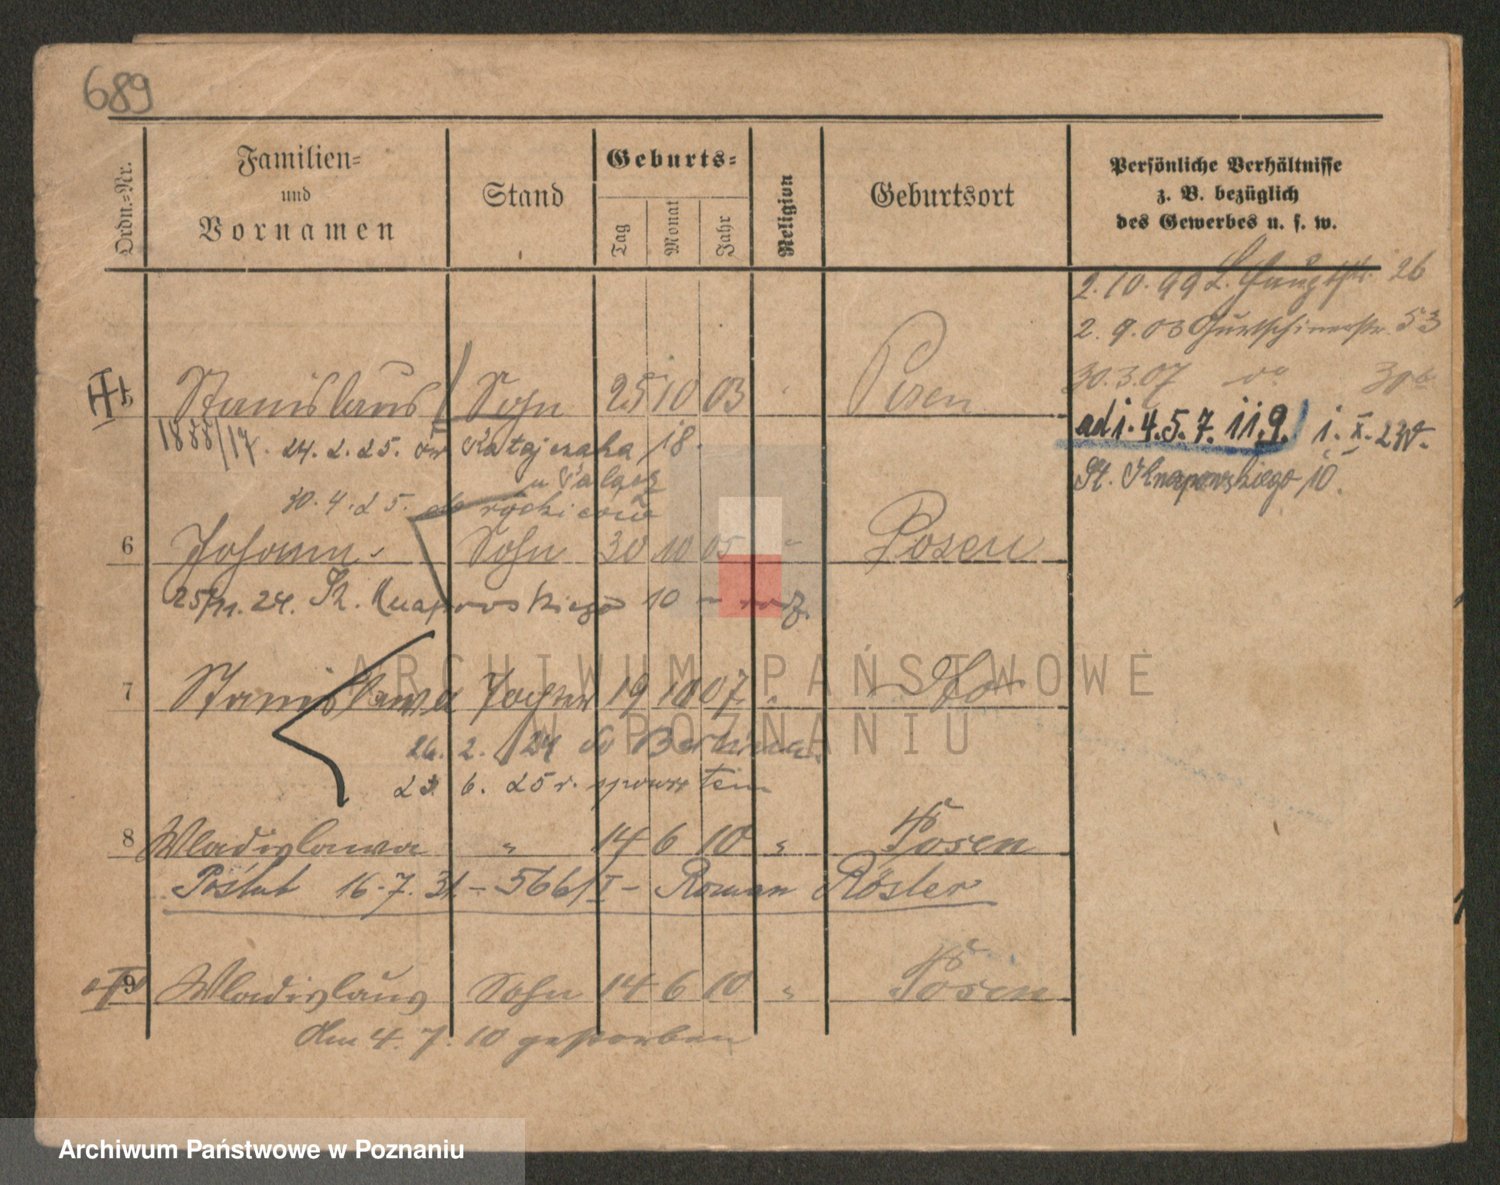 689
Ordn.-Nr.
Familien-
und
Vornamen
Stand
Geburts-
Tag
Monat
Jahr
Religion
Geburtsort
Persönliche Verhältnisse
z. B. bezüglich
des Gewerbes u. s. w.
2.10.99 26
2.9.03 Gurtschinerstr. 53
30.3.07 do 30b
5 Stanislaus Sohn 25 10 03 Posen
ad 1.4.5.7.11.9. 1.X.20.
1888/17. 24.2.25. Ratajczaka 18.
St. Knapowskiego 10.
30.4.25.
6 Johann Sohn 30 10 05 " Posen
25/11.24. St. Knapowskiego 10 rodz.
7 Stanislawa Tochter 19 10 07 " do
26.2.24 do Berlina
23.6.25 r.
8 Wladislawa " 14 6 10 " Posen
16.7.31 – 5661/I – Roman Röster
9 Wladislaus Sohn 14 6 10 " Posen
Am 4.7.10 gestorben
ARCHIWUM PAŃSTWOWE
W POZNANIU
Archiwum Państwowe w Poznaniu